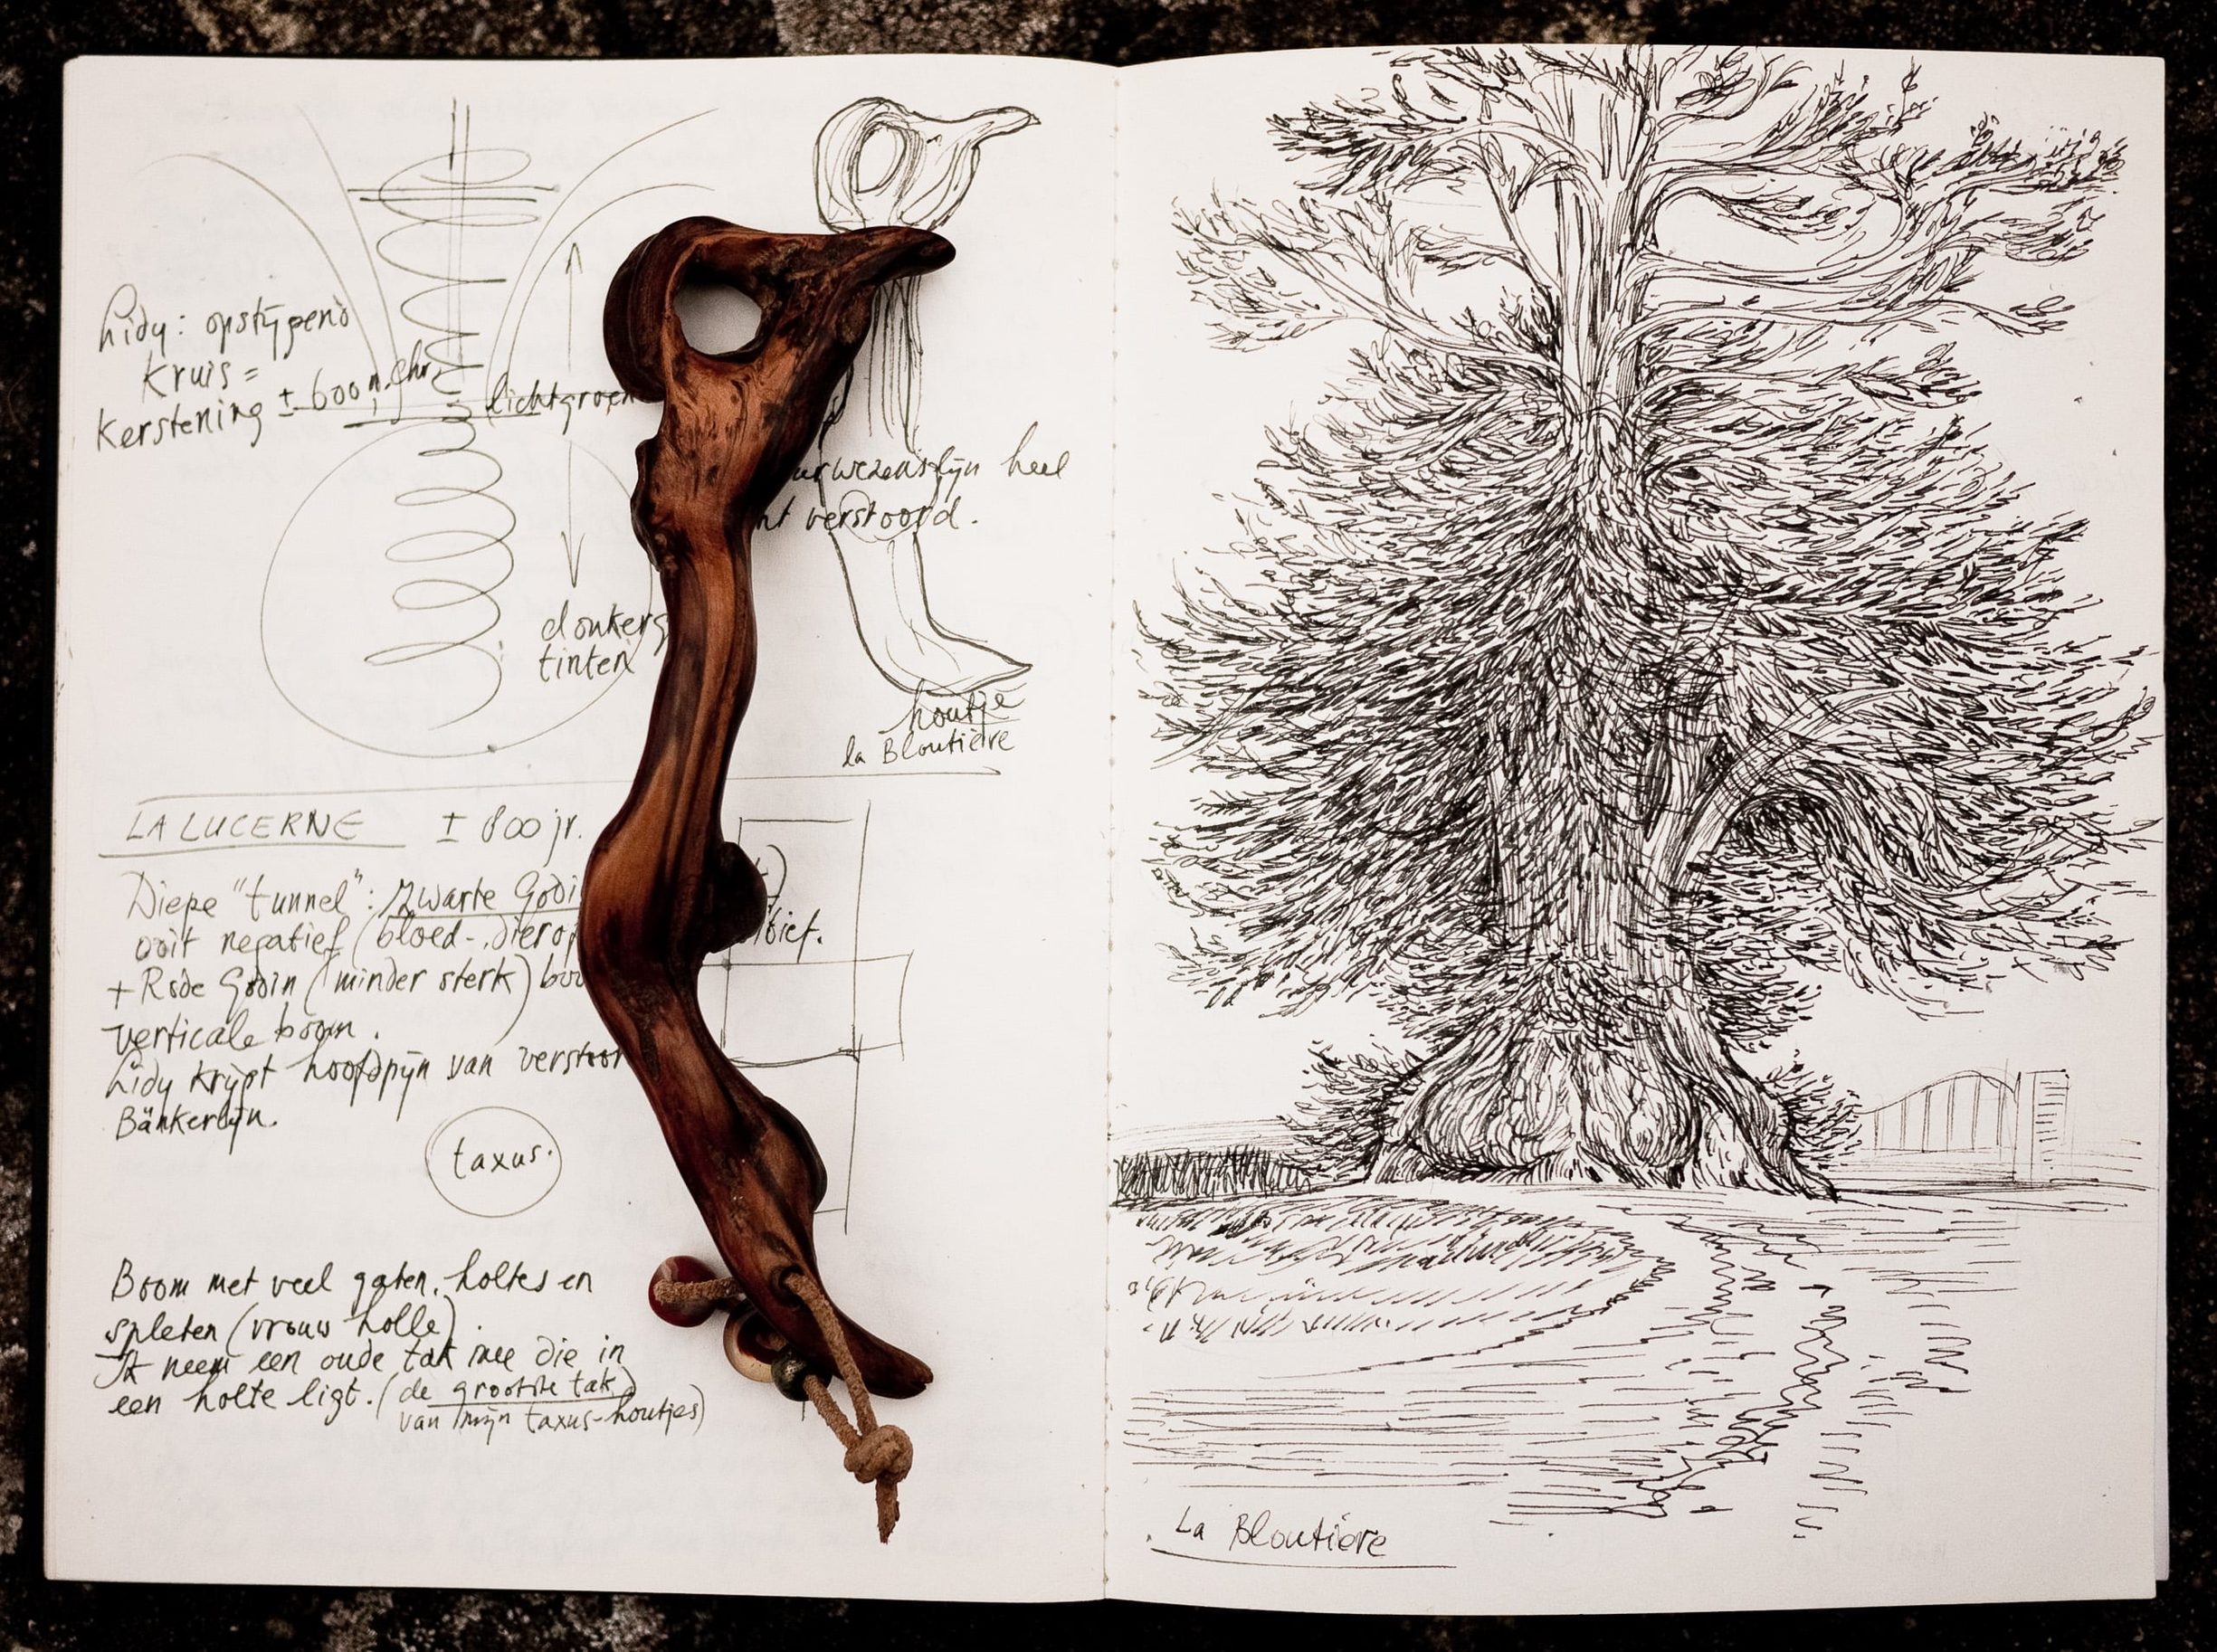 Lidy: opstijgend
kruis =
kerstening ± 600 n. Chr.
lichtgroen
heel
verstoord.
donkerg
tinten
houtje
la Bloutière
LA LUCERNE ± 800 jr.
Diepe "tunnel": Zwarte Godi
ooit negatief (bloed-, dierof
+ Rode Godin (minder sterk)
verticale boom.
Lidy krijgt hoofdpijn van verstoor
Bänkerlijn.
taxus.
Boom met veel gaten, holtes en
spleten (vrouw holle).
Ik neem een oude tak mee die in
een holte ligt. (de grootste tak
van mijn taxus-houtjes)
La Bloutière